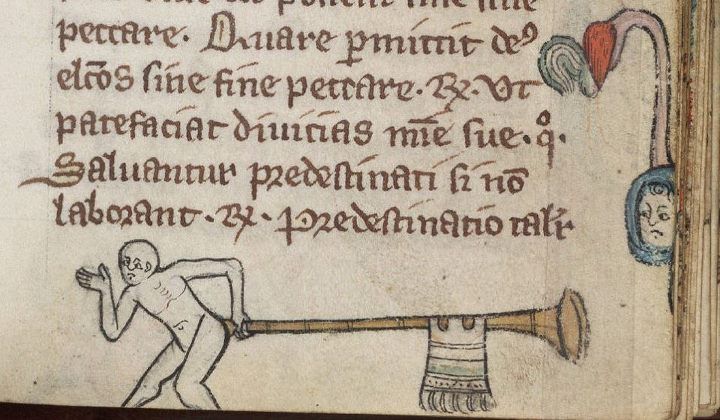 peccare. Quare ꝑmittit deꝰ
elc̄os sine fine peccare. ℞. Ut
patefaciat diuicias mīe sue. q̊.
Saluantur predestinati si nō
laborant. ℞. Predestinatio